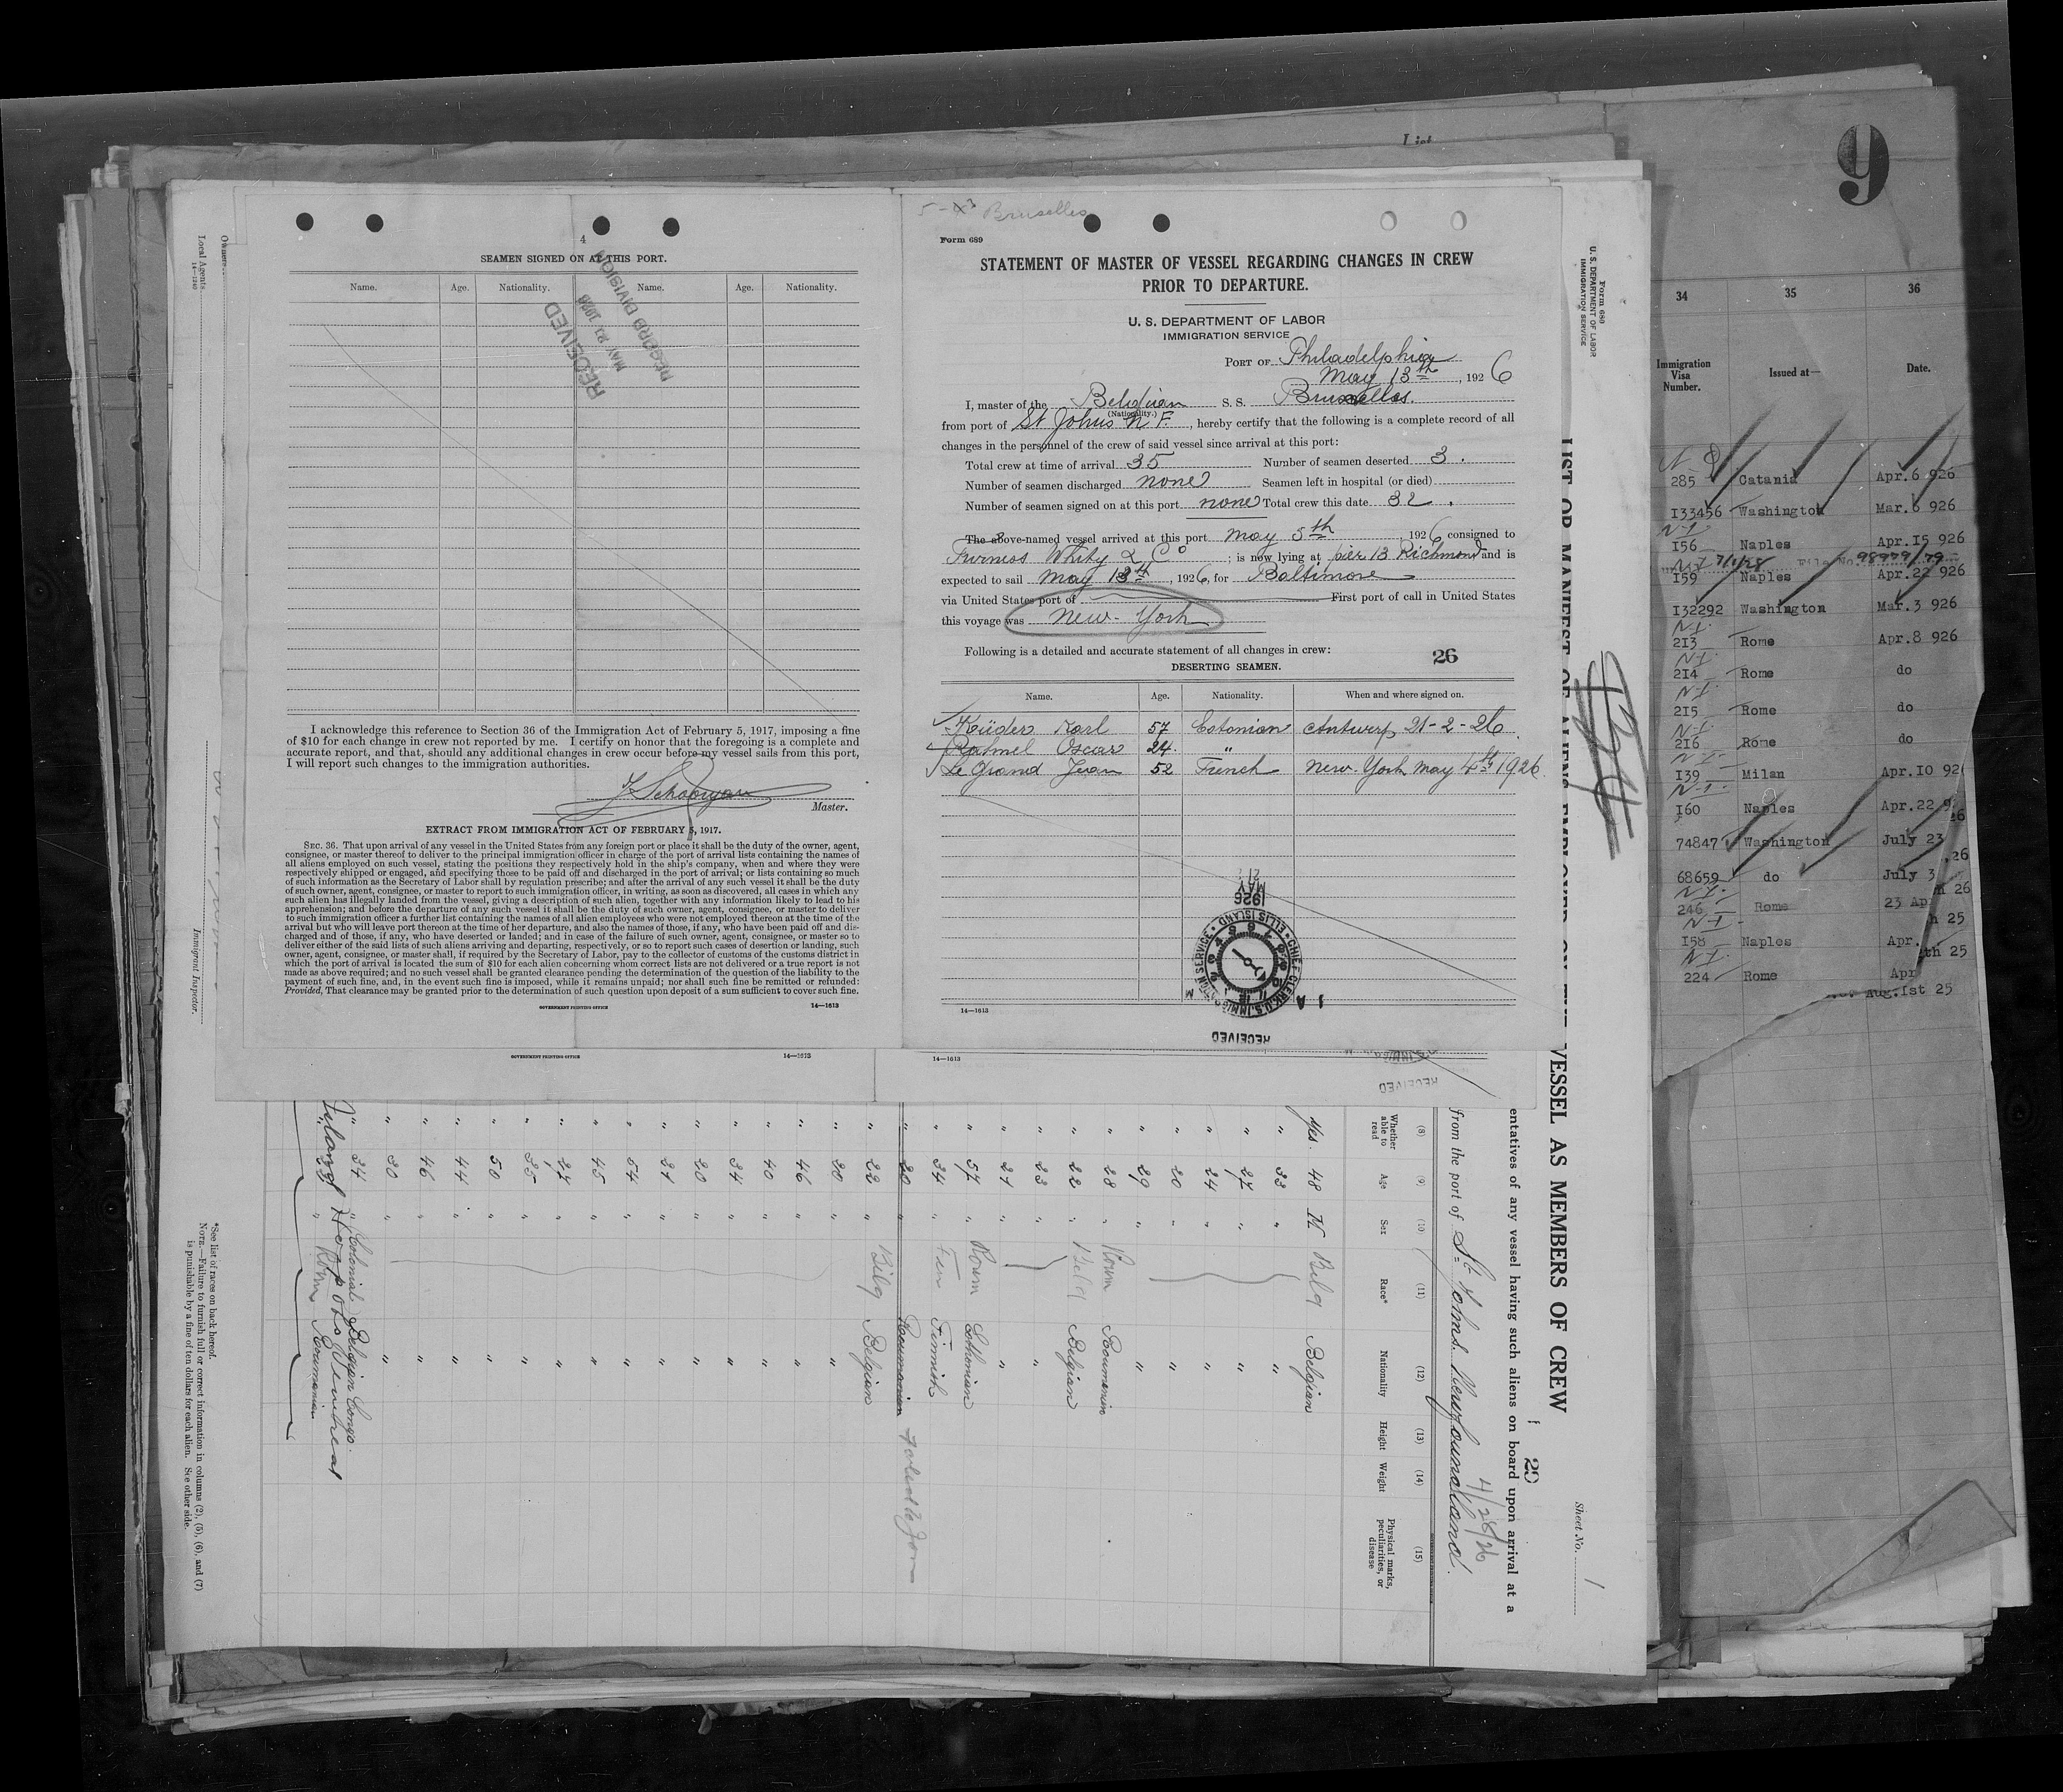 List
9
34 35 36
Immigration Visa Number. Issued at— Date.
285 Catania Apr.6 926
I33456 Washington Mar.6 926
N-I
I56 Naples Apr.I5 926
7/1/28 98979/79
I59 Naples Apr.22 926
I32292 Washington Mar.3 926
N-I.
2I3 Rome Apr.8 926
N-I.
2I4 Rome do
N-I.
2I5 Rome do
N-I.
2I6 Rome do
N-I.
I39 Milan Apr.IO 926
N-I.
I60 Naples Apr.22 9
26
74847 Washington July 23
.26
68659 do July 3
26
N-I.
246 Rome 23 Ap
h 25
N-I-
I58 Naples Apr.
th 25
N-I.
224 Rome Apr
Aug.Ist 25
4
SEAMEN SIGNED ON AT THIS PORT.
Name. Age. Nationality. Name. Age. Nationality.
RECEIVED
MAY 21 1926
RECORD DIVISION
I acknowledge this reference to Section 36 of the Immigration Act of February 5, 1917, imposing a fine
of $10 for each change in crew not reported by me. I certify on honor that the foregoing is a complete and
accurate report, and that, should any additional changes in crew occur before my vessel sails from this port,
I will report such changes to the immigration authorities.
Master.
EXTRACT FROM IMMIGRATION ACT OF FEBRUARY 5, 1917.
SEC. 36. That upon arrival of any vessel in the United States from any foreign port or place it shall be the duty of the owner, agent,
consignee, or master thereof to deliver to the principal immigration officer in charge of the port of arrival lists containing the names of
all aliens employed on such vessel, stating the positions they respectively hold in the ship's company, when and where they were
respectively shipped or engaged, and specifying those to be paid off and discharged in the port of arrival; or lists containing so much
of such information as the Secretary of Labor shall by regulation prescribe; and after the arrival of any such vessel it shall be the duty
of such owner, agent, consignee, or master to report to such immigration officer, in writing, as soon as discovered, all cases in which any
such alien has illegally landed from the vessel, giving a description of such alien, together with any information likely to lead to his
apprehension; and before the departure of any such vessel it shall be the duty of such owner, agent, consignee, or master to deliver
to such immigration officer a further list containing the names of all alien employees who were not employed thereon at the time of the
arrival but who will leave port thereon at the time of her departure, and also the names of those, if any, who have been paid off and dis-
charged and of those, if any, who have deserted or landed; and in case of the failure of such owner, agent, consignee, or master so to
deliver either of the said lists of such aliens arriving and departing, respectively, or so to report such cases of desertion or landing, such
owner, agent, consignee, or master, shall, if required by the Secretary of Labor, pay to the collector of customs of the customs district in
which the port of arrival is located the sum of $10 for each alien concerning whom correct lists are not delivered or a true report is not
made as above required; and no such vessel shall be granted clearance pending the determination of the question of the liability to the
payment of such fine, and, in the event such fine is imposed, while it remains unpaid; nor shall such fine be remitted or refunded:
Provided, That clearance may be granted prior to the determination of such question upon deposit of a sum sufficient to cover such fine.
GOVERNMENT PRINTING OFFICE 14—1613
GOVERNMENT PRINTING OFFICE 14—1613
Bruxelles
Form 689
STATEMENT OF MASTER OF VESSEL REGARDING CHANGES IN CREW
PRIOR TO DEPARTURE.
U. S. DEPARTMENT OF LABOR
IMMIGRATION SERVICE
PORT OF Philadelphia
May 13th, 1926
I, master of the Belgian S. S. Bruxelles.
(Nationality.)
from port of St Johns N. F., hereby certify that the following is a complete record of all
changes in the personnel of the crew of said vessel since arrival at this port:
Total crew at time of arrival 35 Number of seamen deserted 3.
Number of seamen discharged none Seamen left in hospital (or died)
Number of seamen signed on at this port none Total crew this date 32.
The above-named vessel arrived at this port May 5th, 1926 consigned to
Furness Whity & Co; is now lying at pier 13 Richmond and is
expected to sail May 13th, 1926, for Baltimore
via United States port of First port of call in United States
this voyage was New-York
Following is a detailed and accurate statement of all changes in crew:
26
DESERTING SEAMEN.
Name. Age. Nationality. When and where signed on.
Küder Karl 57 Estonian Antwerp 21-2-26.
Ratmel Oscar 24 "
Le Grand Jean 52 French New-York May 4th 1926.
1926
MAY
CHIEF CLERK, U.S. IMMIGRATION SERVICE • ELLIS ISLAND
RECEIVED
14—1613
14—1613
RECEIVED
Form 680
U. S. DEPARTMENT OF LABOR
IMMIGRATION SERVICE
LIST OR MANIFEST OF ALIENS EMPLOYED ON THE VESSEL AS MEMBERS OF CREW
29
Sheet No. 1
entatives of any vessel having such aliens on board upon arrival at a
4/28/26
from the port of St Johns. Newfoundland.
(8) (9) (10) (11) (12) (13) (14) (15)
Whether able to read Age Sex Race* Nationality Height Weight Physical marks, peculiarities, or disease
Yes. 48 M Belg Belgian
" 33 " "
" 27 " "
" 24 " "
" 20 " "
" 29 " "
" 28 " Roum Roumanian
" 22 " Belg Belgian
" 23 " "
" 21 " "
" 57 " Roum Esthonian
" 34 " Fin Finnish
" 20 " Roumanian
" 22 " Belg Belgian
" 20 " "
" 46 " "
" 40 " "
" 34 " "
" 20 " "
" 21 " "
" 54 " "
" 45 " "
" 27 " "
" 35 " "
" 50 " "
" 44 " "
" 46 " "
" 30 " "
" 34 " Colonial Belgian Congo.
" " Roum Roumanian
Owners
Local Agents
14—1240
Immigrant Inspector.
*See list of races on back hereof.
NOTE.—Failure to furnish full or correct information in columns (2), (5), (6), and (7)
is punishable by a fine of ten dollars for each alien. See other side.